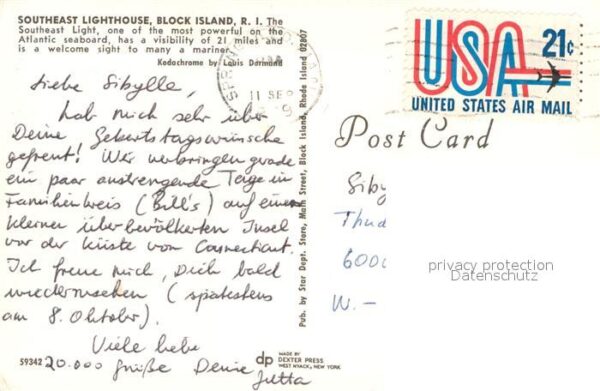 SOUTHEAST LIGHTHOUSE, BLOCK ISLAND, R. I. The
Southeast Light, one of the most powerful on the
Atlantic seaboard, has a visibility of 21 miles and
is a welcome sight to many a mariner.
Kodachrome by Louis Dormand
Liebe Sibylle,
hab mich sehr über
Deine Geburtstagswünsche
gefreut! Wir verbringen gerade
ein paar anstrengende Tage im
Familienkreis (Bill's) auf einer
kleinen überbevölkerten Insel
vor der Küste von Connecticut.
Ich freue mich, Dich bald
wiederzusehen (spätestens
am 8. Oktober).
Viele liebe
20.000 Grüße Deine
Jutta
59342
Pub. by Star Dept. Store, Main Street, Block Island, Rhode Island 02807
dp
MADE BY
DEXTER PRESS
WEST NYACK, NEW YORK
11 SEP
USA 21¢
UNITED STATES AIR MAIL
Post Card
Siby
Thud
6000
W. –
privacy protection
Datenschutz